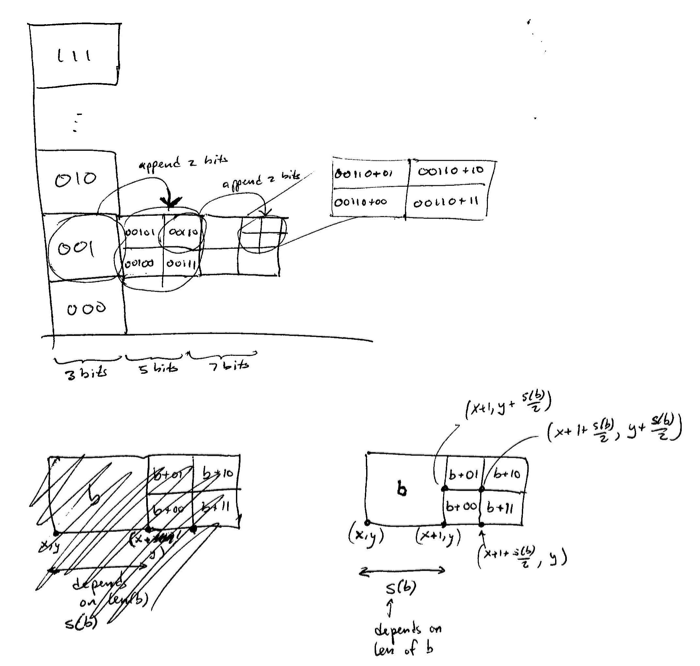 111
⋮
010
append 2 bits
append 2 bits
00110+01 00110+10
00110+00 00110+11
001
00101 00110
00100 00111
000
3 bits 5 bits 7 bits
(x+1, y + s(b)/2)
(x+1+ s(b)/2, y + s(b)/2)
b
b+01 b+10
b+00 b+11
x,y
(x+
y)
depends
on len(b)
s(b)
b
b+01 b+10
b+00 b+11
(x,y) (x+1,y)
(x+1+ s(b)/2, y)
s(b)
depends on
len of b